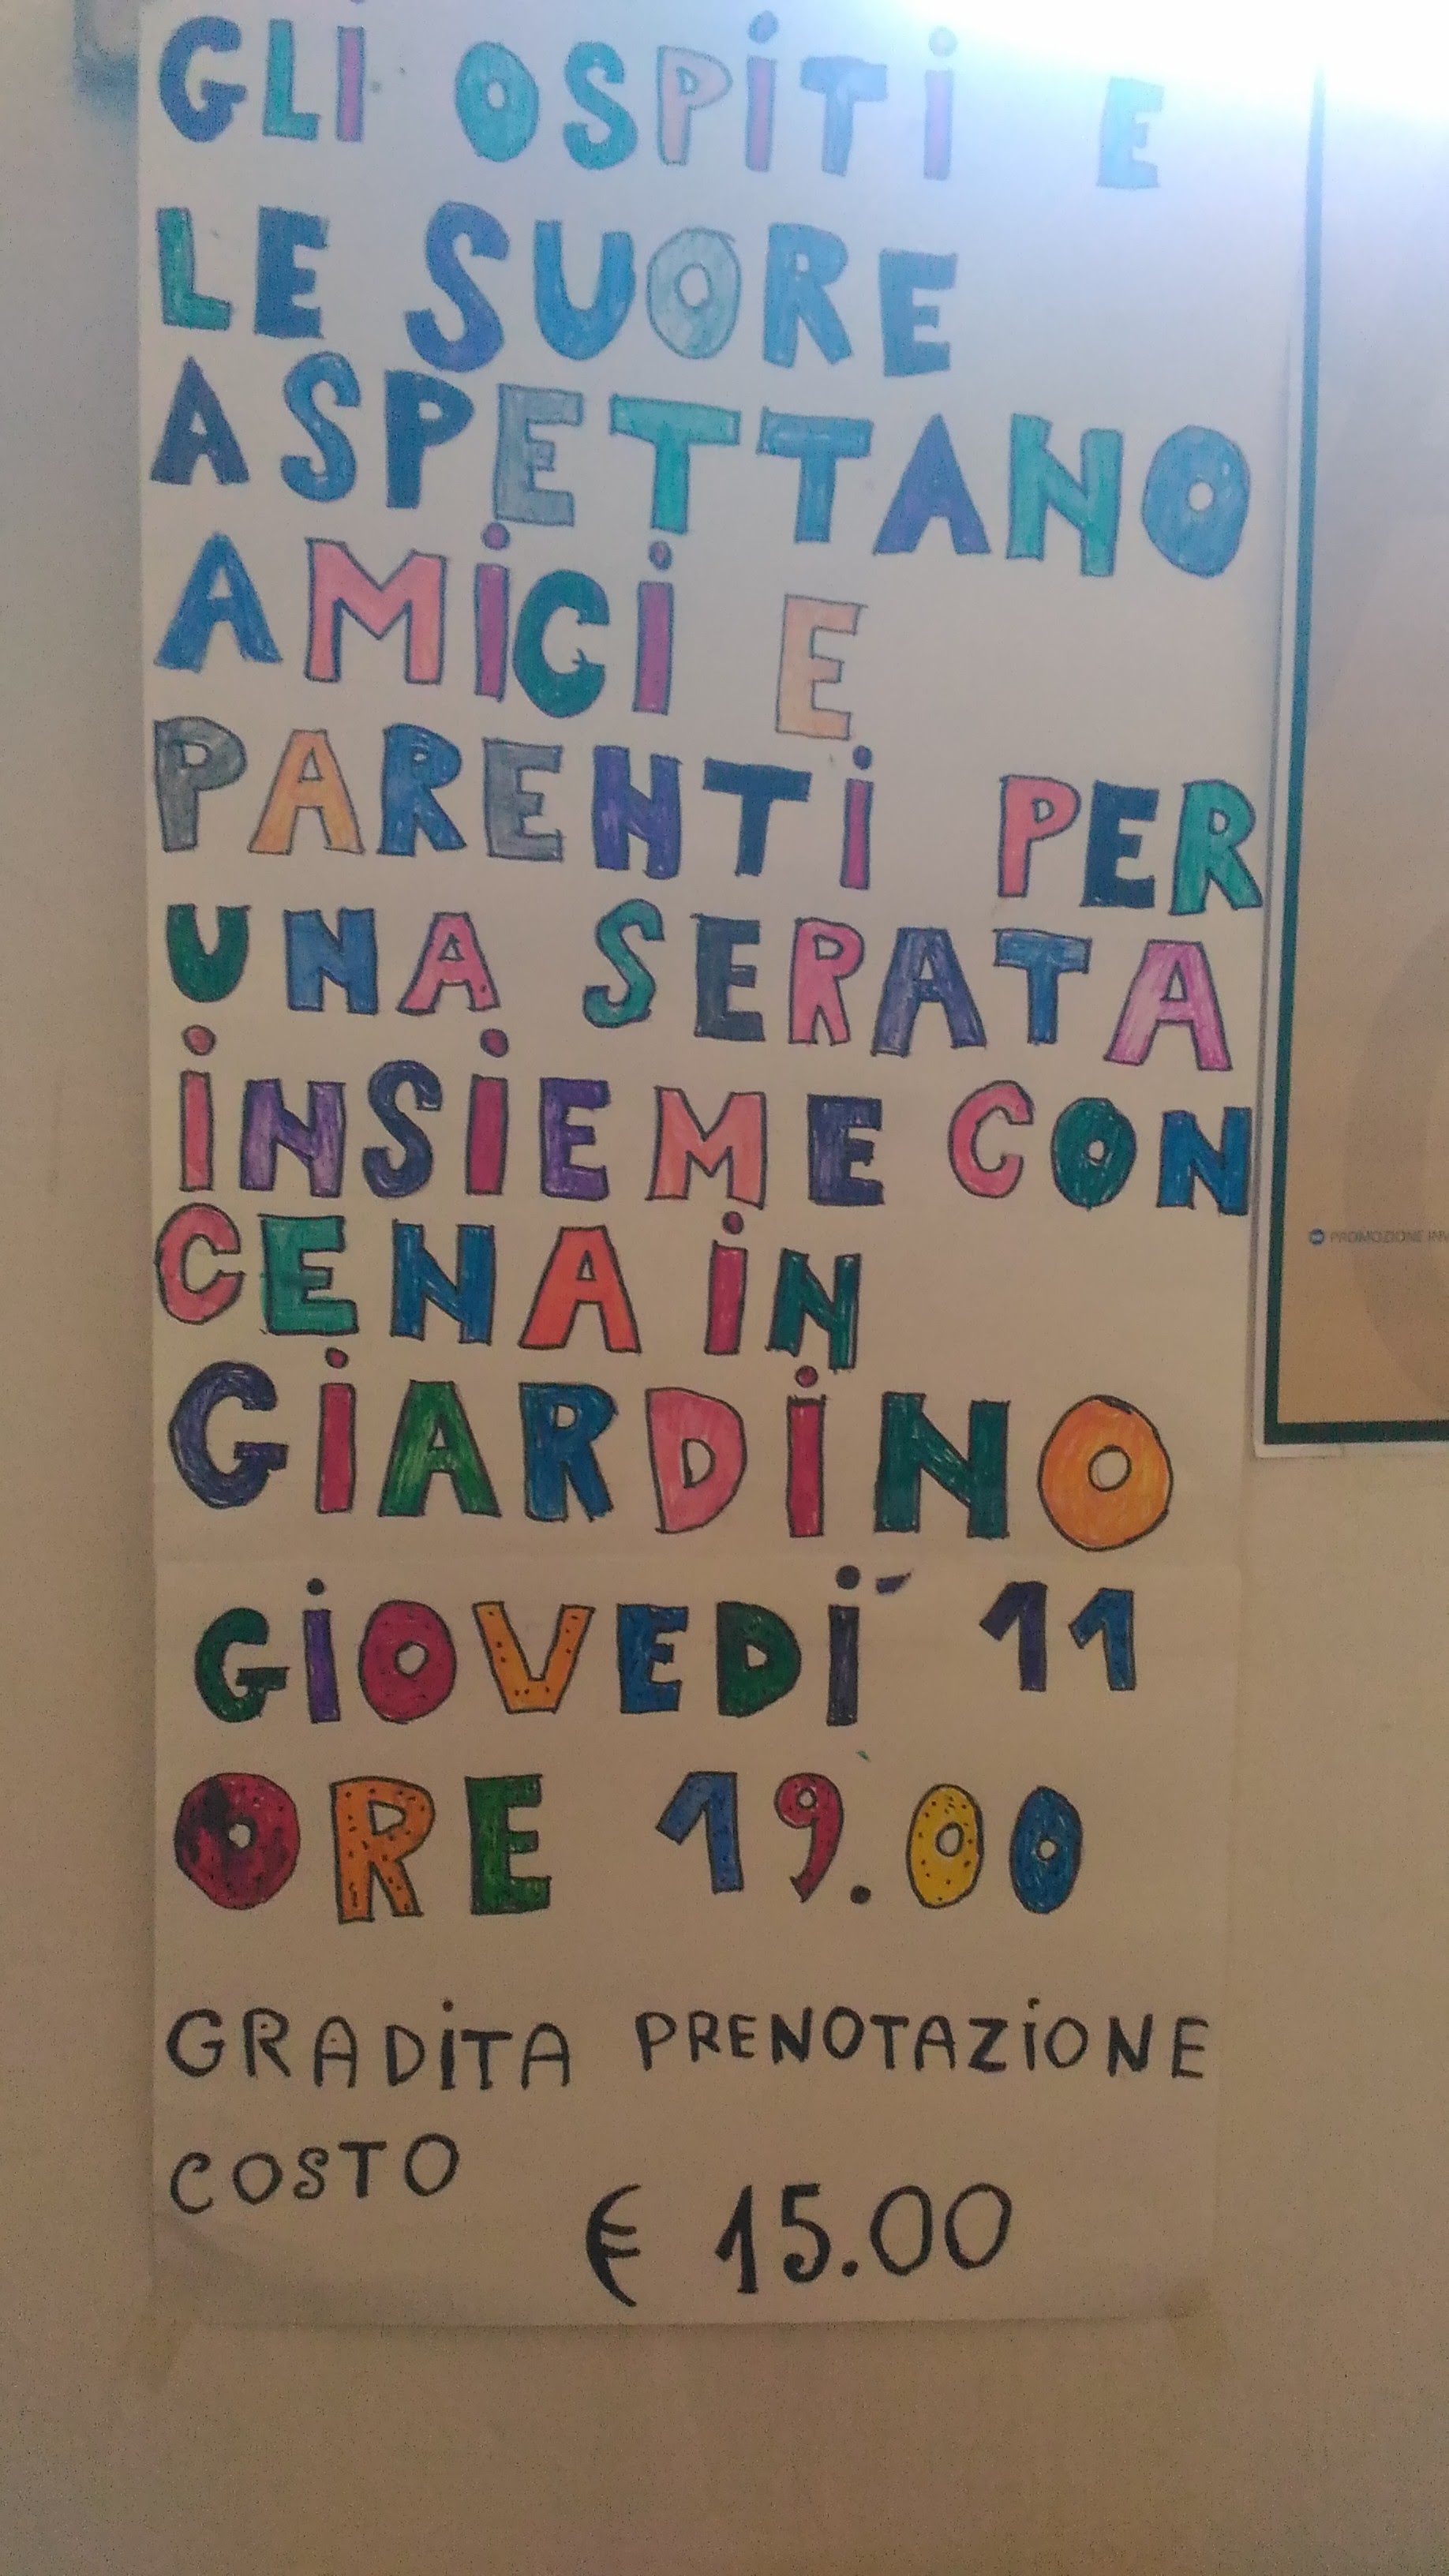 GLI OSPITI E
LE SUORE
ASPETTANO
AMICI E
PARENTI PER
UNA SERATA
INSIEME CON
CENA IN
GIARDINO
GIOVEDI' 11
ORE 19.00
GRADITA PRENOTAZIONE
COSTO
€ 15.00
PROMOZIONE